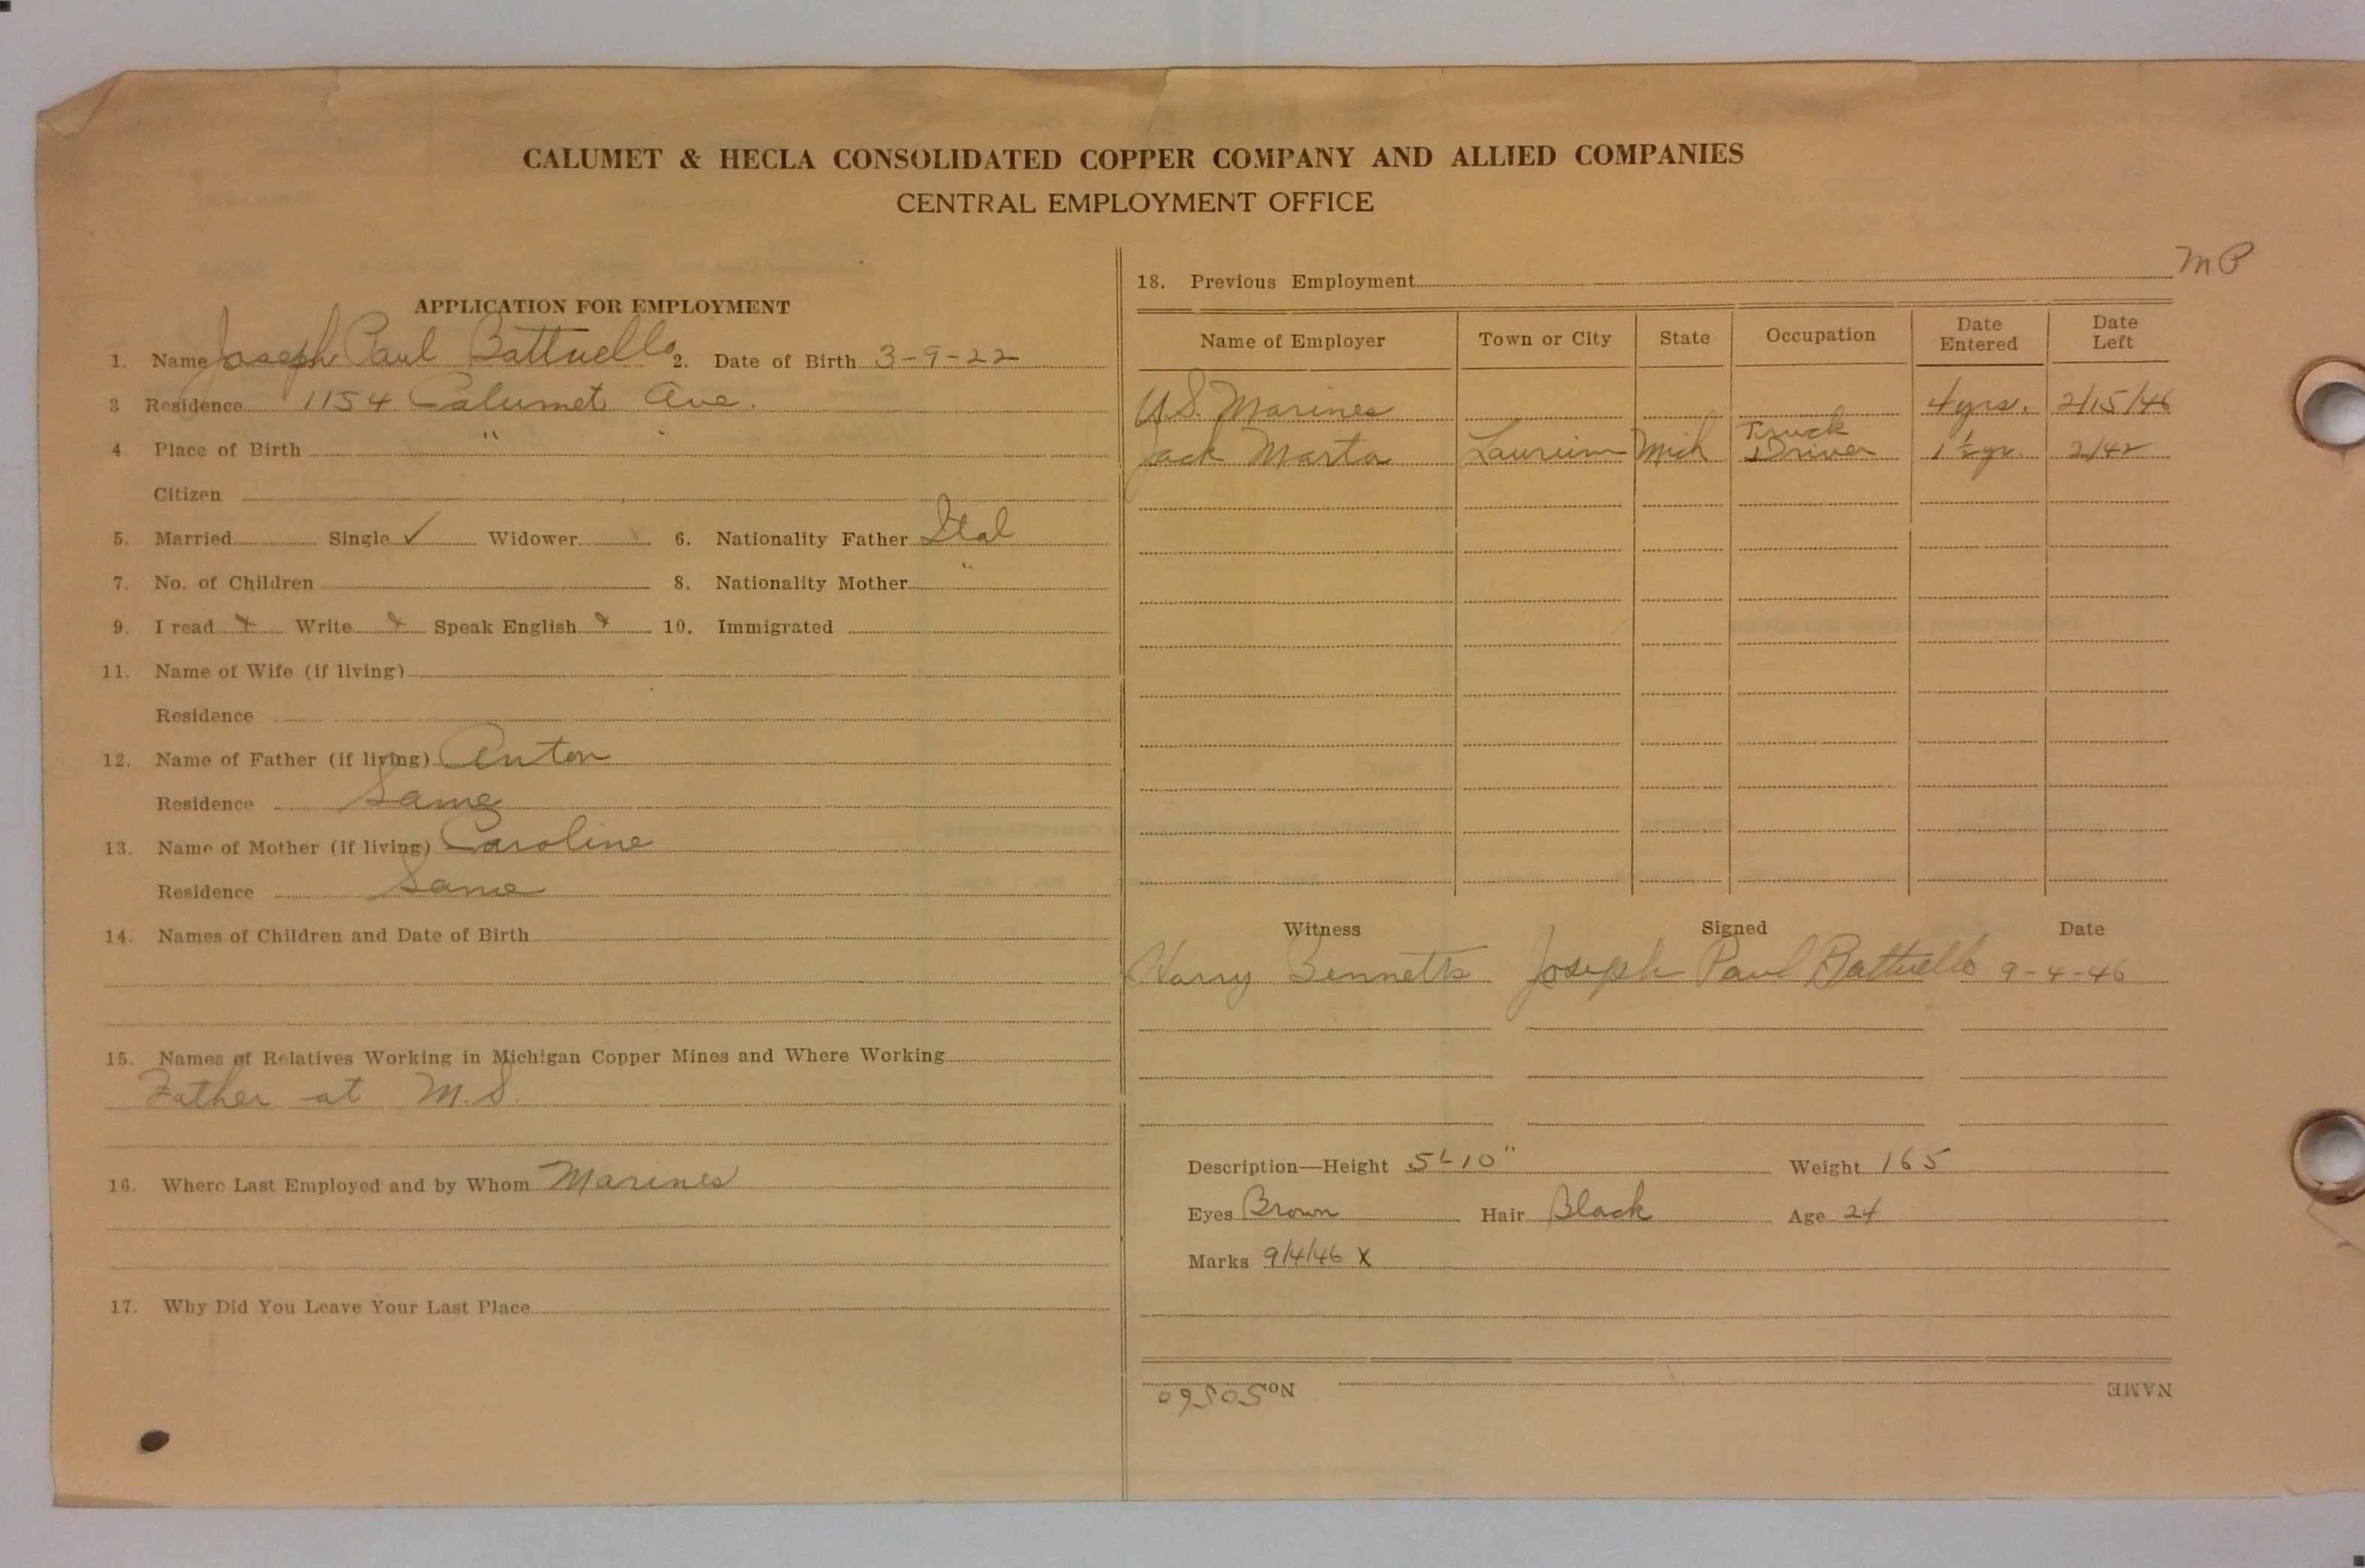 CALUMET & HECLA CONSOLIDATED COPPER COMPANY AND ALLIED COMPANIES
CENTRAL EMPLOYMENT OFFICE
APPLICATION FOR EMPLOYMENT
1. Name Joseph Paul Battuello 2. Date of Birth 3-9-22
3 Residence 1154 Calumet Ave.
4 Place of Birth "
Citizen
5. Married Single ✓ Widower 6. Nationality Father Ital
7. No. of Children 8. Nationality Mother "
9. I read x Write x Speak English x 10. Immigrated
11. Name of Wife (if living)
Residence
12. Name of Father (if living) Anton
Residence Same
13. Name of Mother (if living) Caroline
Residence Same
14. Names of Children and Date of Birth
15. Names of Relatives Working in Michigan Copper Mines and Where Working
Father at M.S.
16. Where Last Employed and by Whom Marines
17. Why Did You Leave Your Last Place
18. Previous Employment MP
Name of Employer Town or City State Occupation Date Entered Date Left
U.S. Marines 4 yrs. 2/15/46
Jack Marta Laurium Mich Truck Driver 1 ½ yr. 2/42
Witness Signed Date
Harry Bennetts Joseph Paul Battuello 9-4-46
Description—Height 5'-10" Weight 165
Eyes Brown Hair Black Age 24
Marks 9/4/46 X
NAME No. 50560